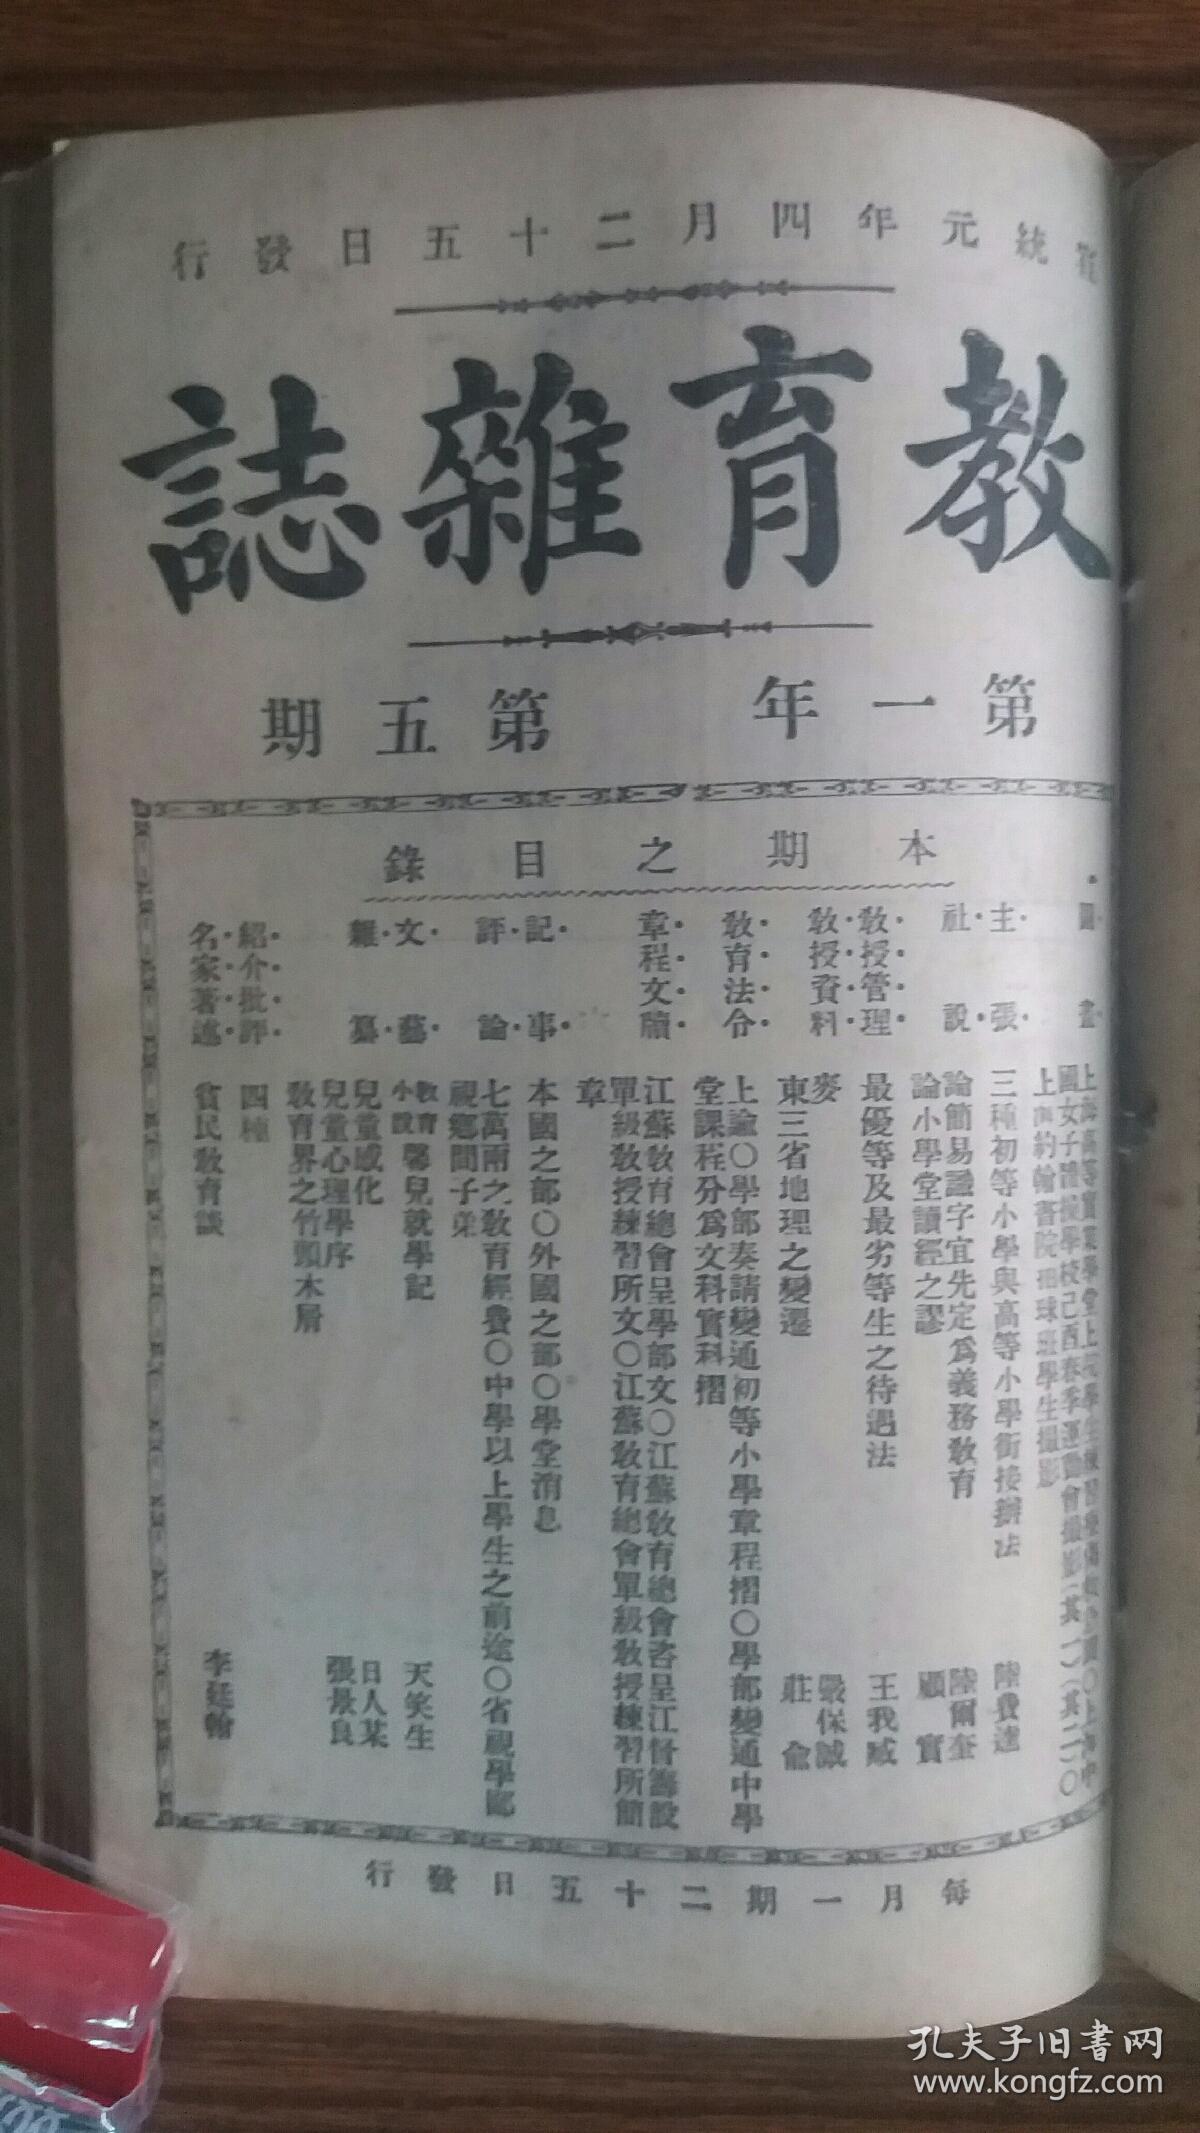 統元年四月二十五日發行
教育雜誌
第一年 第五期
本期之目錄
圖畫
上海高等實業學堂上院學生
國女子體操學校己酉春季運動會攝影(其一)(其二)〇
上海約翰書院棍球班學生攝影
主張
三種初等小學與高等小學銜接辦法 陸費逵
社說
論簡易識字宜先定爲義務教育 陸爾奎
論小學堂讀經之謬 顧實
教授管理
最優等及最劣等生之待遇法 王我臧
教授資料
麥 嚴保誠
東三省地理之變遷 莊俞
教育法令
上諭〇學部奏請變通初等小學章程摺〇學部變通中學
堂課程分爲文科實科摺
章程文牘
江蘇教育總會呈學部文〇江蘇教育總會咨呈江督籌設
單級教授練習所文〇江蘇教育總會單級教授練習所簡
章
記事
本國之部〇外國之部〇學堂消息
評論
七萬兩之教育經費〇中學以上學生之前途〇省視學鄙
視鄉間子弟
文藝
教育小說 馨兒就學記 天笑生
雜纂
兒童感化 日人某
兒童心理學序 張景良
教育界之竹頭木屑
紹介批評
四種
名家著述
貧民教育談 李廷翰
每月一期二十五日發行
孔夫子旧書网
www.kongfz.com